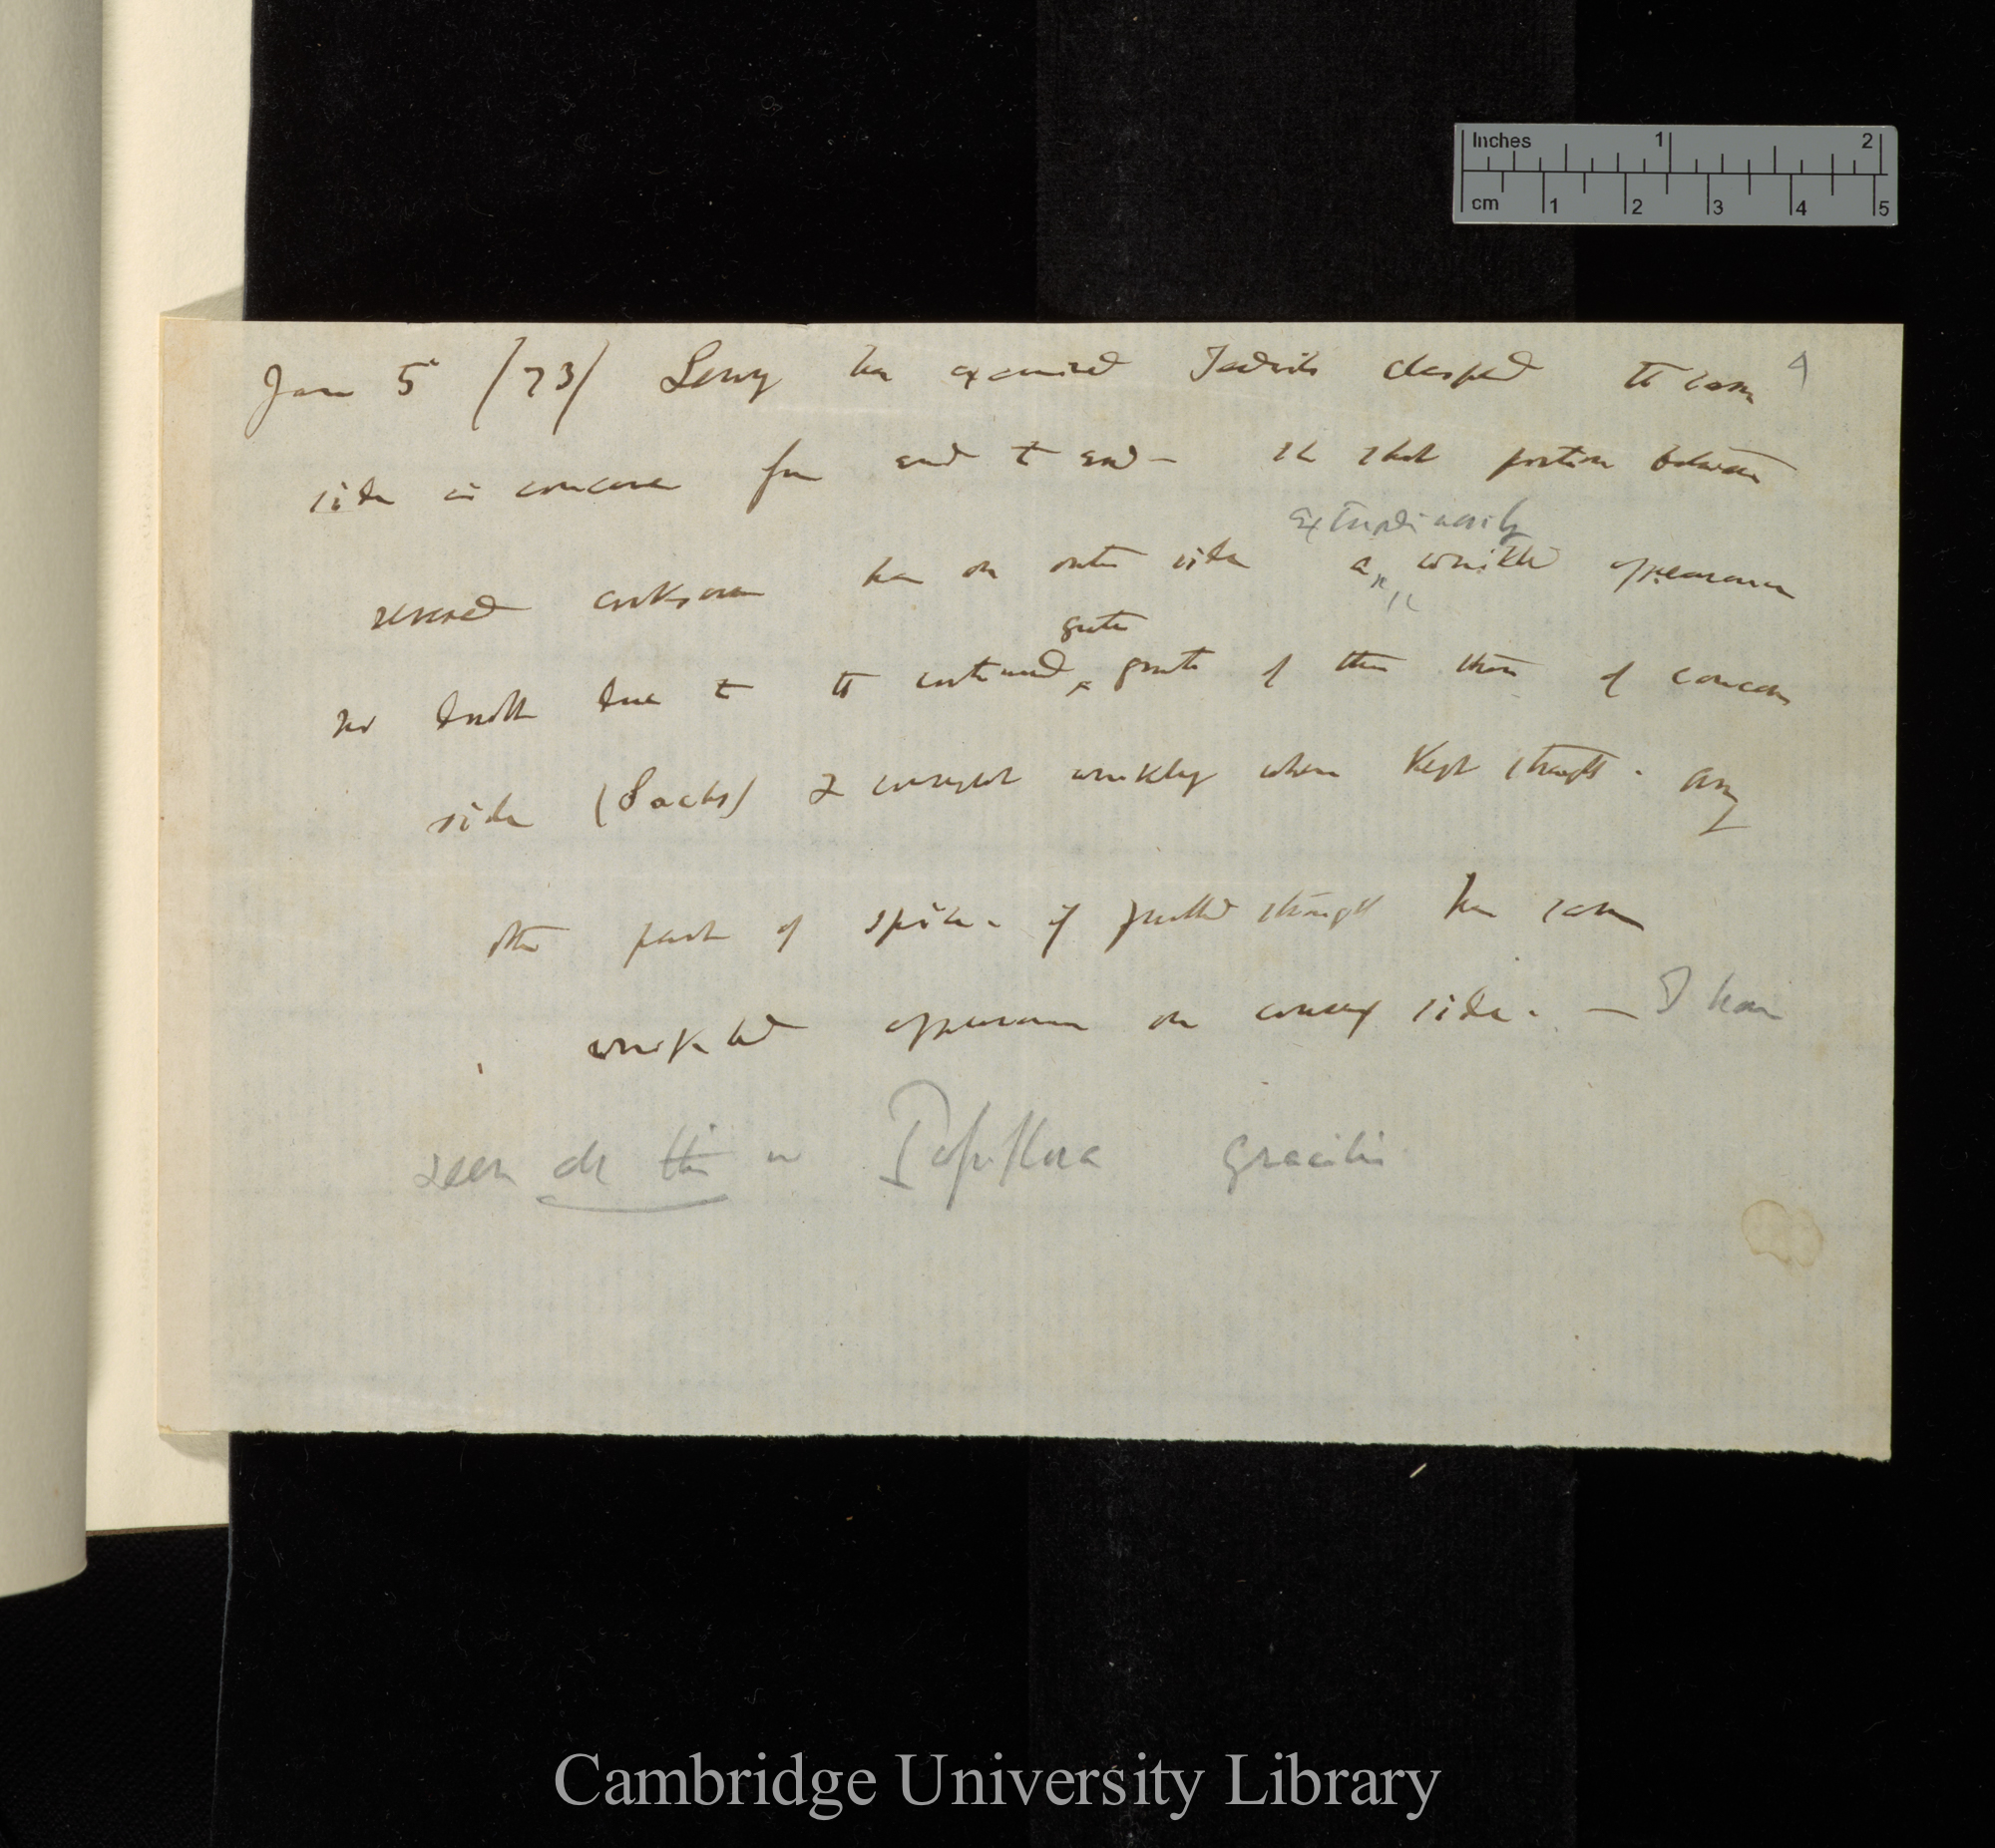 Inches 1 2
cm 1 2 3 4 5
Jan 5 /73/ Leny has examined Tendrils clasped the same
side is concave from end to end — the short portion between
extraordinarily
reversed corkscrew has on outer side a wrinkled appearance
greater
no doubt due to the continued growth of this than of concave
side (Sachs) & consequent wrinkling when kept straight. Any
other part of spire. if pulled straight has same
wrinkled appearance on convex side. — I have
seen all this in Passiflora gracilis
Cambridge University Library